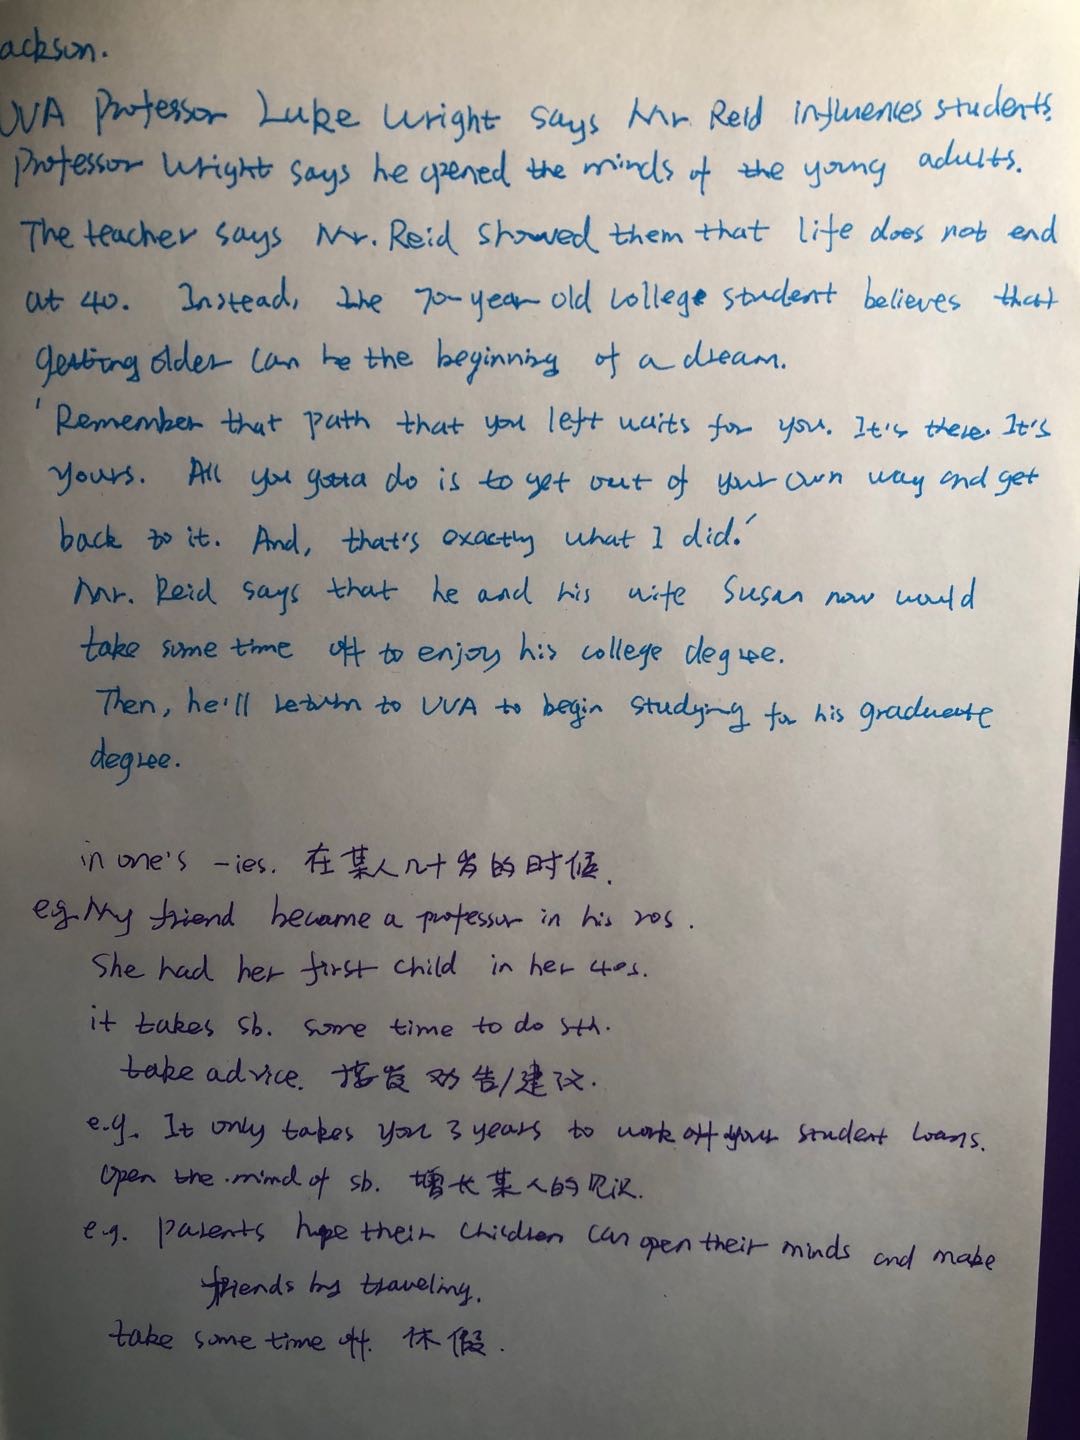 ackson.
UVA Professor Luke Wright says Mr Reid influences students.
Professor Wright says he opened the minds of the young adults.
The teacher says Mr. Reid showed them that life does not end
at 40. Instead, the 70-year old college student believes that
getting older can be the beginning of a dream.
'Remember that path that you left waits for you. It's there. It's
yours. All you gotta do is to get out of your own way and get
back to it. And, that's exactly what I did.'
Mr. Reid says that he and his wife Susan now would
take some time off to enjoy his college degree.
Then, he'll return to UVA to begin studying for his graduate
degree.
in one's -ies. 在某人几十岁的时候.
e.g. My friend became a professor in his 20s.
She had her first child in her 40s.
it takes sb. some time to do sth.
take advice. 接受劝告/建议.
e.g. It only takes you 3 years to work off your student loans.
open the mind of sb. 增长某人的见识.
e.g. parents hope their children can open their minds and make
friends by traveling.
take some time off. 休假.